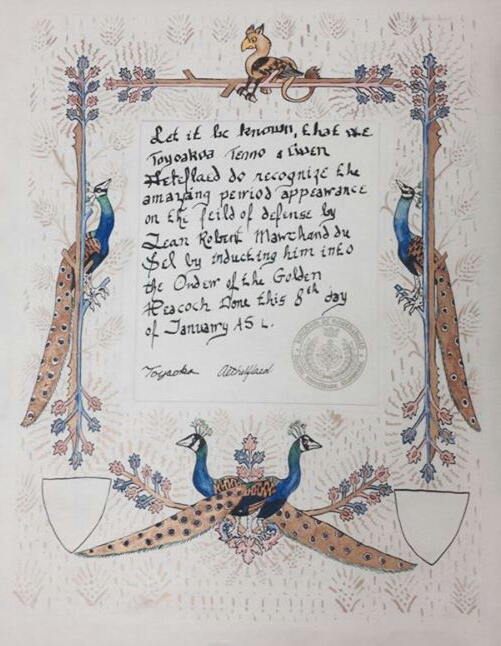 Let it be known, that we
Toyoakva Tenno & Cwen
Aethflaed do recognize the
amazing period appearance
on the feild of defense by
Jean Robert Marchand du
Sel by inducting him into
the Order of the Golden
Peacock Done this 8th day
of January AS L.
Toyaoka Aethelflaed